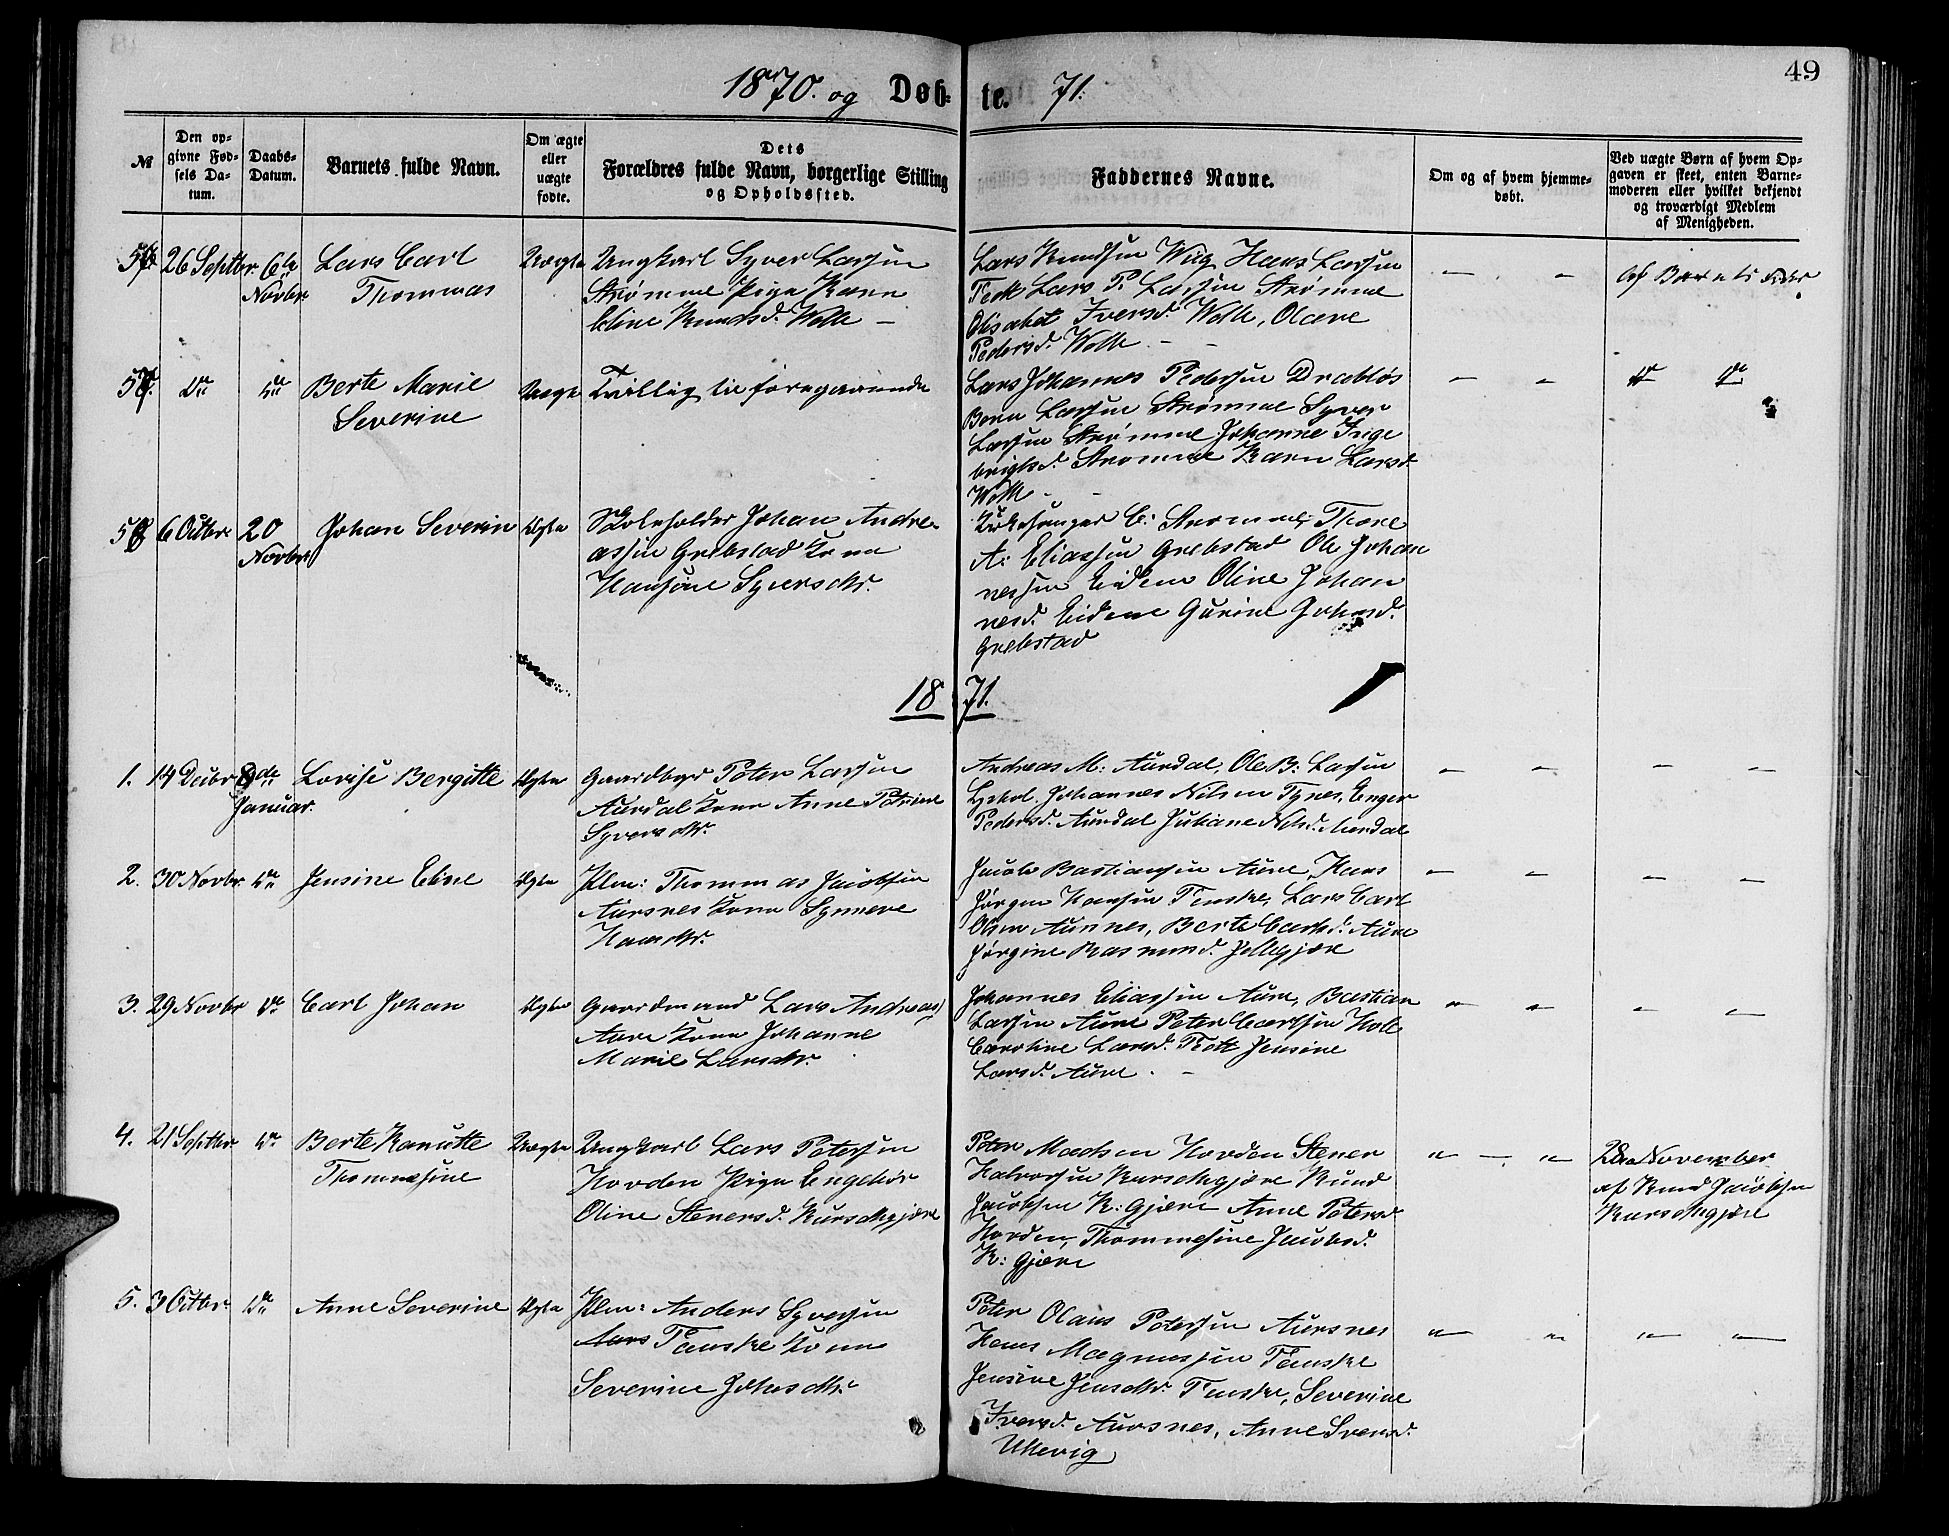 49
1870. og Døb- te. 71.
№
Den op-
givne Fød-
sels Da-
tum.
Daabs-
Datum.
Barnets fulde Navn.
Om ægte
eller
uægte
fødte.
Dets
Forældres fulde Navn, borgerlige Stilling
og Opholdssted.
Faddernes Navne.
Om og af hvem hjemme-
døbt.
Ved uægte Børn af hvem Op-
gaven er skeet, enten Barne-
moderen eller hvilket bekjendt
og troværdigt Medlem
af Menigheden.
26 Septbr 6te
Novbr
Lars Carl
Thommas
Uægte
Ungkarl Syver Larssen
Strømme Pige Karn
Eline Knudsd. Wolle —
Lars Knudssen Wiig Hans Larssen
Lars P. Larssen Strømme
Elisabet Iversd. Wolle, Olave
Pedersd. Wolle — —
— —
af Barnets Fader
57. do do
Berte Marie
Severine
Uægte
Tvilling til foregaaende
Lars Johannes Pedersen Drabløs
Bernt Larssen Strømme Syver
Larssen Strømme Johanne Inge
brigtsd. Strømme Karn Larsd.
Wolle — —
— —
do do
58 6 Octbr 20
Novbr
Johan Severin
Ægte
Skoleholder Johan Andre-
assen Grebstad Kone
Hansine Syversdtr.
Kirkesanger C. Strømme, Thore
A: Eliassen Grebstad Ole Johan
nessen Eidem Oline Johan
nesd. Eidem Gurine Johnsd.
Grebstad
1871.
1. 14 Decbr 8de
Januar.
Lovise Bergitte
Ægte
Gaardbgr Peter Larssen
Aurdal Kone Anne Petrine
Syversdtr.
Andreas M: Aurdal, Ole B: Larssen
Johannes Nilsen Tynes, Enger
Pedersd. Aurdal Juliane Nilsd. Aurdal
— — — —
2. 30 Novbr. do
Jensine Eline
Ægte
Plm: Thommas Jacobsen
Aursnes Kone Synneve
Hansdtr.
Jacob Bastianssen Aure, Hans
Jørgen Hanssen Fauske, Lars Carl
Olsen Aursnes, Berte Carlsd. Aure
Jørgine Rasmusd.
— — — —
3. 29 Novbr do
Carl Johan
Ægte
Gaardmand Lars Andreas
Aure Kone Johanne
Marie Larsdtr.
Johannes Eliassen Aure, Bastian
Larssen Aure Peter Carlssen Hole
Caroline Larsd. Jensine
Larsd. Aure. —
— — — —
4. 21 Septbr do
Berte Kanutte
Thommesine
Uægte
Ungkarl Lars Peterssen
Hovden Pige Engebor
Oline Stenersd. Kurseth­gjære
Peter Madsen Hovden Stener
Halvorssen Kursethgjære Knud
Jacobsen K: Gjære Anne Petersd.
Hovden, Thommesine Jacobsd.
K: Gjære
— — —
November
af Knud Jacobsen
Kursethgjære
5. 3 Octbr. do
Anne Severine
Ægte
Plm: Anders Syverssen
Fauske Kone
Severine Johnsdtr.
Peter Olaus Peterssen Aursnes
Hans Magnussen Fauske
Jensine Jensdtr. Fauske, Severine
Iversd. Aursnes, Anne Svensd.
— — — —